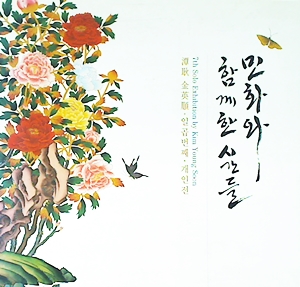 민화와
함께한 시간들
7th Solo Exhibition by Kim Young Soon
金英順 · 일곱번째 · 개인전